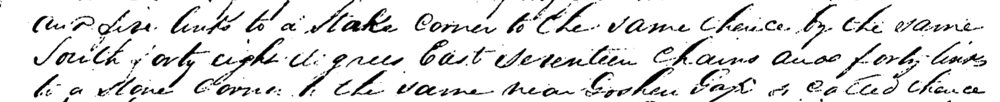 and five links to a Stake Corner to the same thence by the same
South forty eight degrees East seventeen Chains and forty links
to a Stone Corner to the same near Goshen Gap so called thence